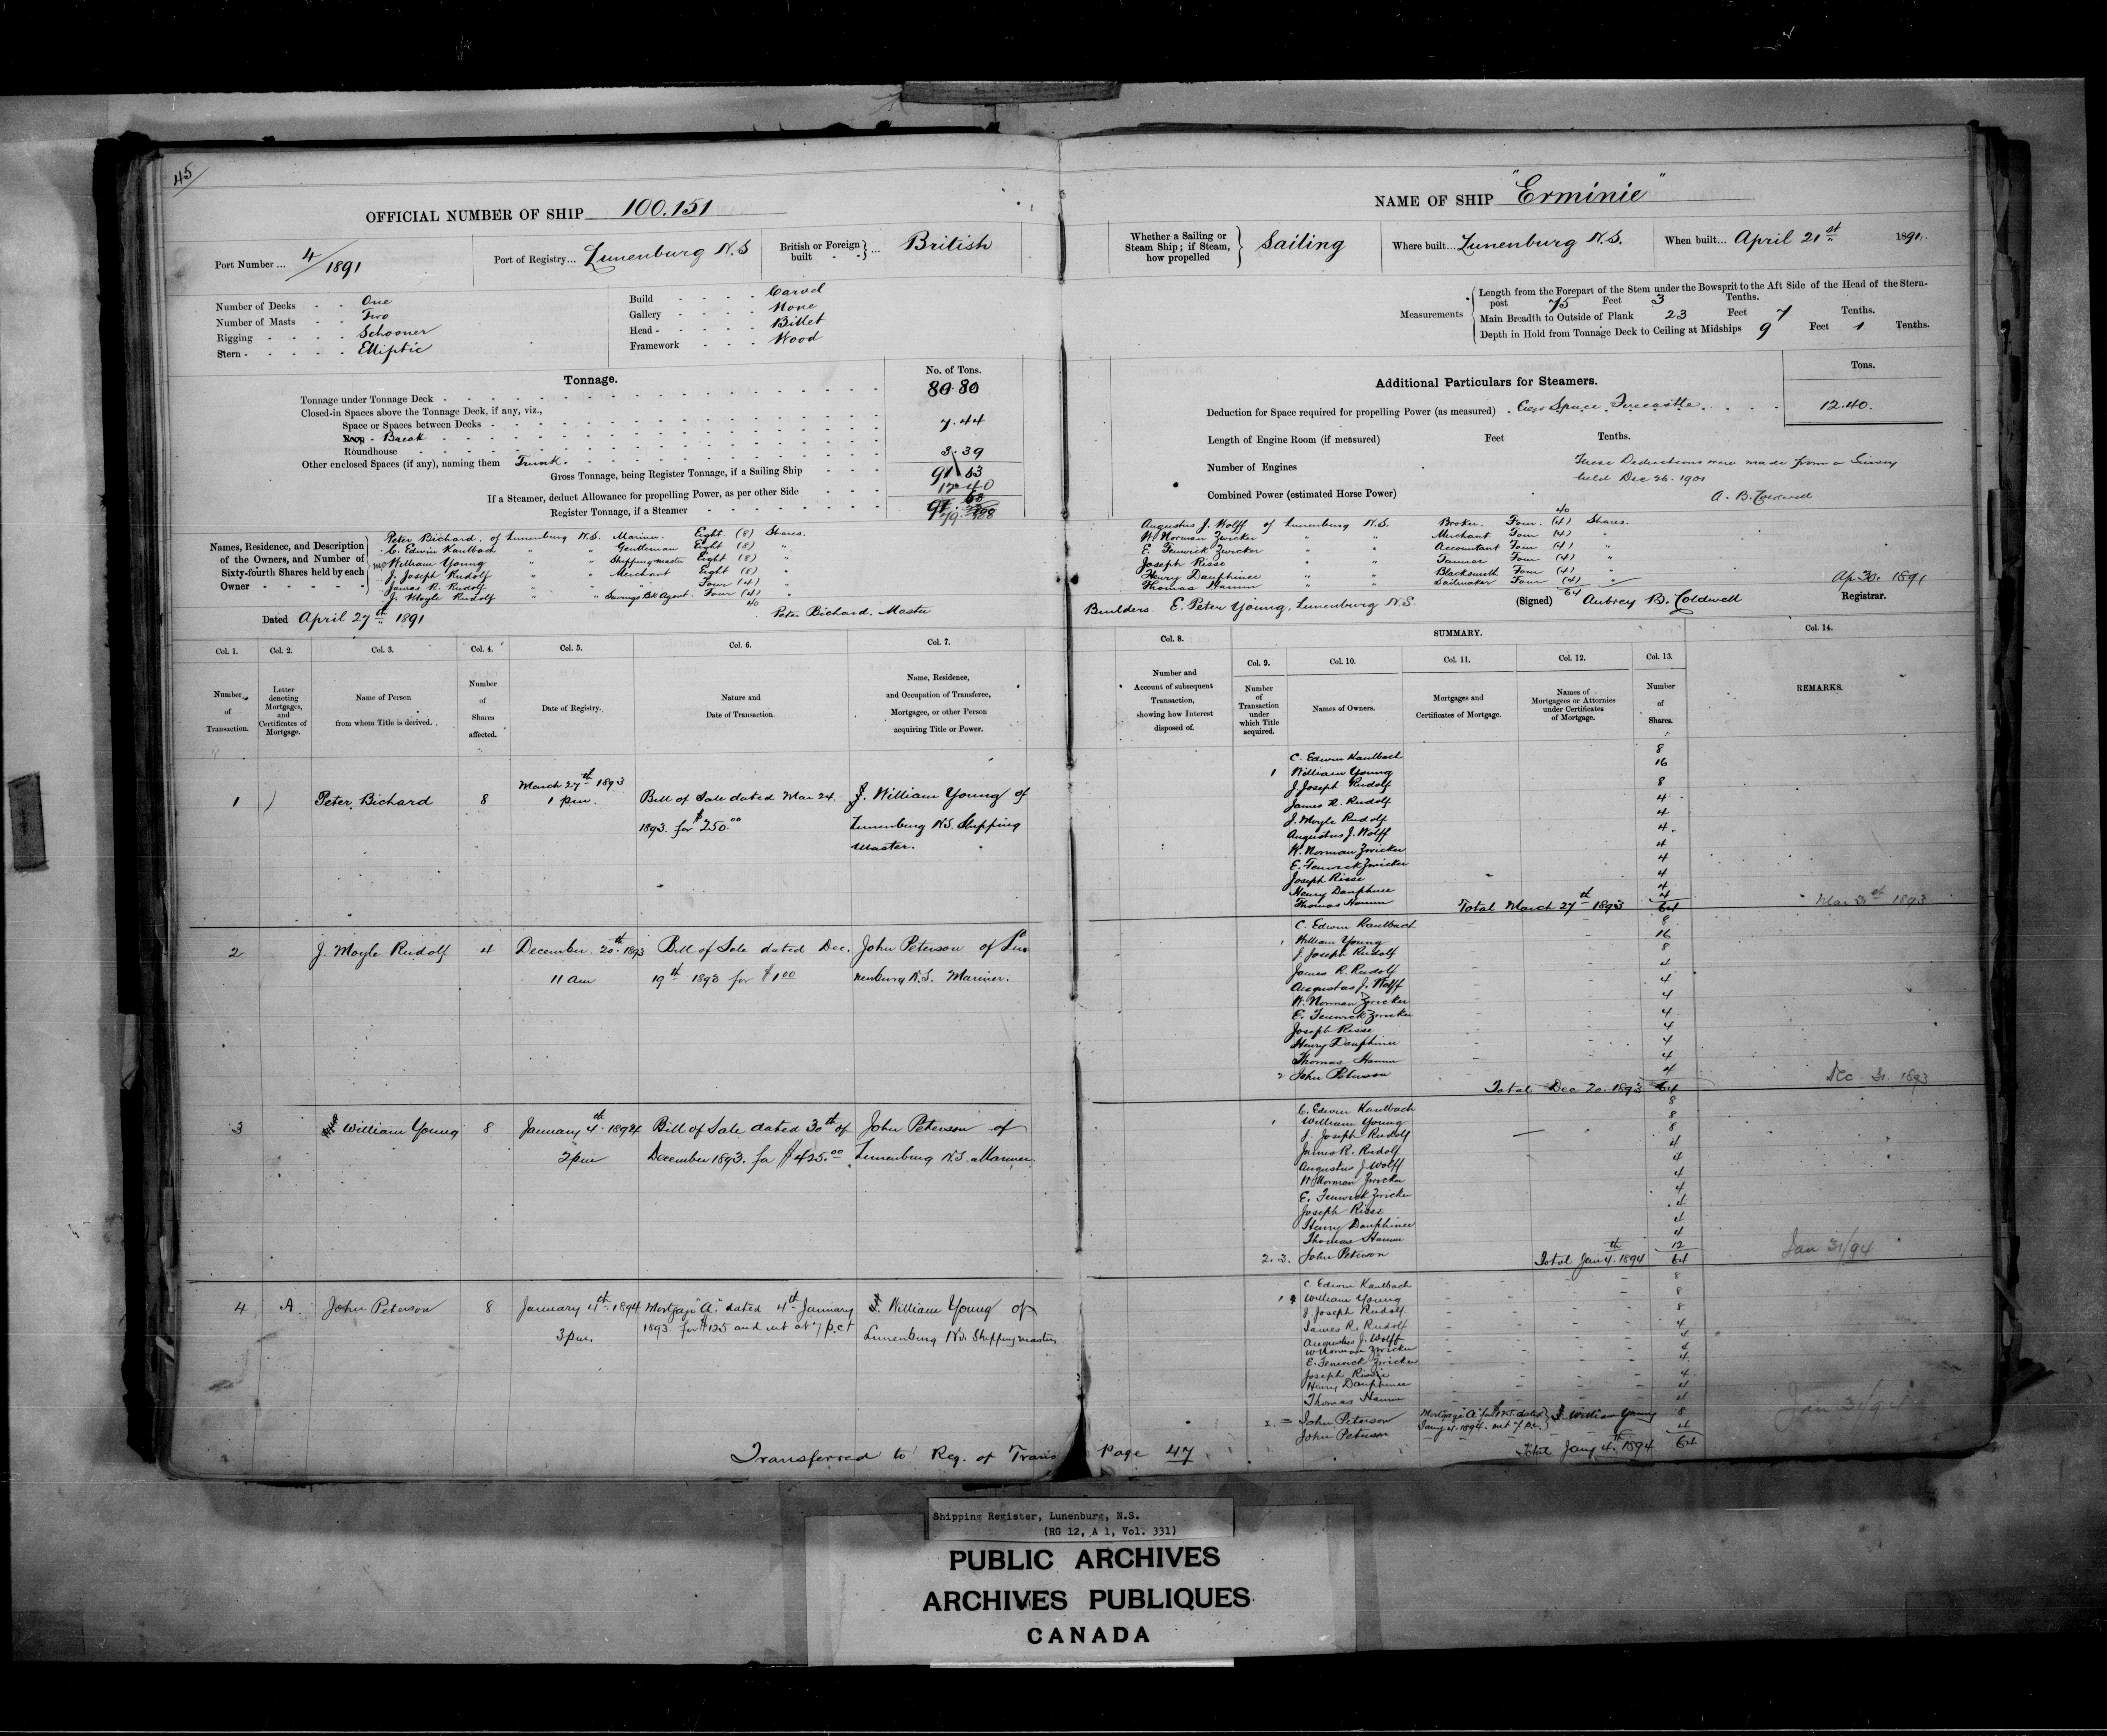 45
OFFICIAL NUMBER OF SHIP 100.151
Port Number ... 4/1891
Port of Registry... Lunenburg N.S
British or Foreign built } ... British
Number of Decks - - One
Number of Masts - - Two
Rigging - - - - Schooner
Stern - - - - - Elliptic
Build - - - - Carvel
Gallery - - - - None
Head - - - - - Billet
Framework - - - Wood
Tonnage.
No. of Tons.
Tonnage under Tonnage Deck - 80.80
Closed-in Spaces above the Tonnage Deck, if any, viz.,
Space or Spaces between Decks - 7.44
Poop - Break
Roundhouse
Other enclosed Spaces (if any), naming them Trunk. 3.39
Gross Tonnage, being Register Tonnage, if a Sailing Ship 91 63
If a Steamer, deduct Allowance for propelling Power, as per other Side 12 40
Register Tonnage, if a Steamer
Names, Residence, and Description of the Owners, and Number of Sixty-fourth Shares held by each Owner
Peter Bichard. of Lunenburg N.S. Mariner. Eight (8) Shares.
C. Edwin Kaulbach " " Gentleman Eight (8) "
William Young " " Shipping master Eight (8) "
J. Joseph Rudolf " " Merchant Eight (8) "
James R. Rudolf " " " Four (4) "
J. Moyle Rudolf " " Savings Bk Agent. Four (4) "
40
Dated April 27th 1891
Peter Bichard. Master
NAME OF SHIP "Erminie"
Whether a Sailing or Steam Ship; if Steam, how propelled } Sailing
Where built... Lunenburg N.S.
When built... April 21st 1891.
Measurements
Length from the Forepart of the Stem under the Bowsprit to the Aft Side of the Head of the Stern-
post 75 Feet 3 Tenths.
Main Breadth to Outside of Plank 23 Feet 7 Tenths.
Depth in Hold from Tonnage Deck to Ceiling at Midships 9 Feet 1 Tenths.
Additional Particulars for Steamers.
Tons.
Deduction for Space required for propelling Power (as measured) - Crew Space Forecastle. 12.40.
Length of Engine Room (if measured) Feet Tenths.
Number of Engines
Combined Power (estimated Horse Power)
These Deductions were made from a Survey
held Dec 26. 1901
A. B. Coldwell
40
Augustus J. Wolff of Lunenburg N.S. Broker. Four. (4) Shares.
W. Norman Zwicker " " Merchant Four (4) "
E. Fenwick Zwicker " " Accountant Four (4) "
Joseph Risse " " Tanner Four (4) "
Henry Dauphinee " " Blacksmith Four (4) "
Thomas Hamm " " Sailmaker Four (4) "
64
Builders. E. Peter Young, Lunenburg N.S.
(Signed) Aubrey B. Coldwell
Registrar.
Ap 30. 1891
Col. 1. Col. 2. Col. 3. Col. 4. Col. 5. Col. 6. Col. 7.
Number of Transaction.
Letter denoting Mortgages, and Certificates of Mortgage.
Name of Person from whom Title is derived.
Number of Shares affected.
Date of Registry.
Nature and Date of Transaction.
Name, Residence, and Occupation of Transferee, Mortgagee, or other Person acquiring Title or Power.
Col. 8. SUMMARY. Col. 14.
Col. 9. Col. 10. Col. 11. Col. 12. Col. 13.
Number and Account of subsequent Transaction, showing how Interest disposed of.
Number of Transaction under which Title acquired.
Names of Owners.
Mortgages and Certificates of Mortgage.
Names of Mortgagees or Attornies under Certificates of Mortgage.
Number of Shares.
REMARKS.
1 Peter Bichard 8 March 27th 1893 1 pm. Bill of Sale dated Mar 24. 1893. for $250.00 William Young of Lunenburg N.S. Shipping Master.
C. Edwin Kaulbach 8
1 William Young 16
J. Joseph Rudolf 8
James R. Rudolf 4
J. Moyle Rudolf 4
Augustus J. Wolff 4
W. Norman Zwicker 4
E. Fenwick Zwicker 4
Joseph Risse 4
Henry Dauphinee 4
Thomas Hamm 4
Total March 27th 1893 64
Mar 31st 1893
2 J. Moyle Rudolf 4 December. 20th 1893 11 am Bill of Sale dated Dec. 19th 1893 for $1.00 John Peterson of Lunenburg N.S. Mariner.
C. Edwin Kaulbach 8
1 William Young 16
J. Joseph Rudolf 8
James R. Rudolf 4
Augustus J. Wolff 4
W. Norman Zwicker 4
E. Fenwick Zwicker 4
Joseph Risse 4
Henry Dauphinee 4
Thomas Hamm 4
2 John Peterson 4
Total Dec 20. 1893 64
Dec 31. 1893
3 William Young 8 January 4th 1894 2 pm Bill of Sale dated 30th of December 1893. for $425.00 John Peterson of Lunenburg N.S. Mariner.
C. Edwin Kaulbach 8
1 William Young 8
J. Joseph Rudolf 8
James R. Rudolf 4
Augustus J Wolff 4
W Norman Zwicker 4
E. Fenwick Zwicker 4
Joseph Risse 4
Henry Dauphinee 4
Thomas Hamm 4
2. 3. John Peterson 12
Total Jan 4th 1894 64
Jan 31/94
4 A. John Peterson 8 January 4th 1894 3 pm. Mortgage "A" dated 4th January 1893. for $125 and int at 7 p.c.t William Young of Lunenburg N.S. Shipping master.
C. Edwin Kaulbach 8
1 William Young 8
J. Joseph Rudolf 8
James R. Rudolf 4
Augustus J. Wolff 4
W Norman Zwicker 4
E. Fenwick Zwicker 4
Joseph Risse 4
Henry Dauphinee 4
Thomas Hamm 4
John Peterson Mortgage "A" for $125. dated Jany 4. 1894. int 7 p.c. William Young 8
John Peterson 4
Total Jany 4th 1894 64
Jan 31/94
Transferred to Reg. of Trans Page 47
Shipping Register, Lunenburg, N.S.
(RG 12, A 1, Vol. 331)
PUBLIC ARCHIVES
ARCHIVES PUBLIQUES
CANADA